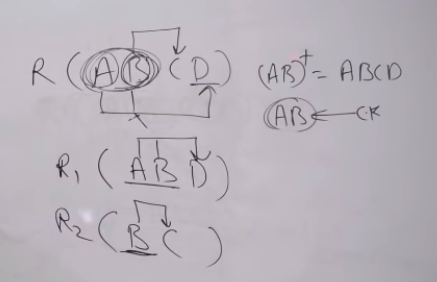 R (A B C D) (AB)+ = ABCD
AB CK
R1 (A B D)
R2 (B C)